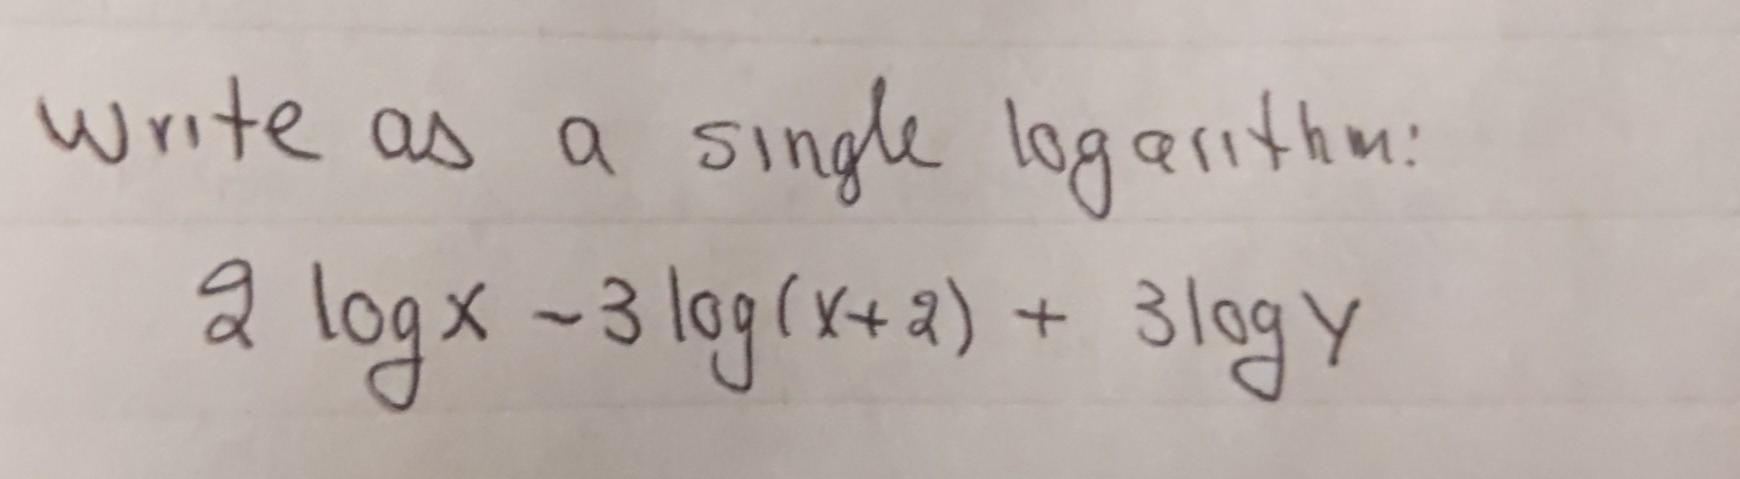 Write as a single logarithm:
2 log x - 3 log(x+2) + 3 log y